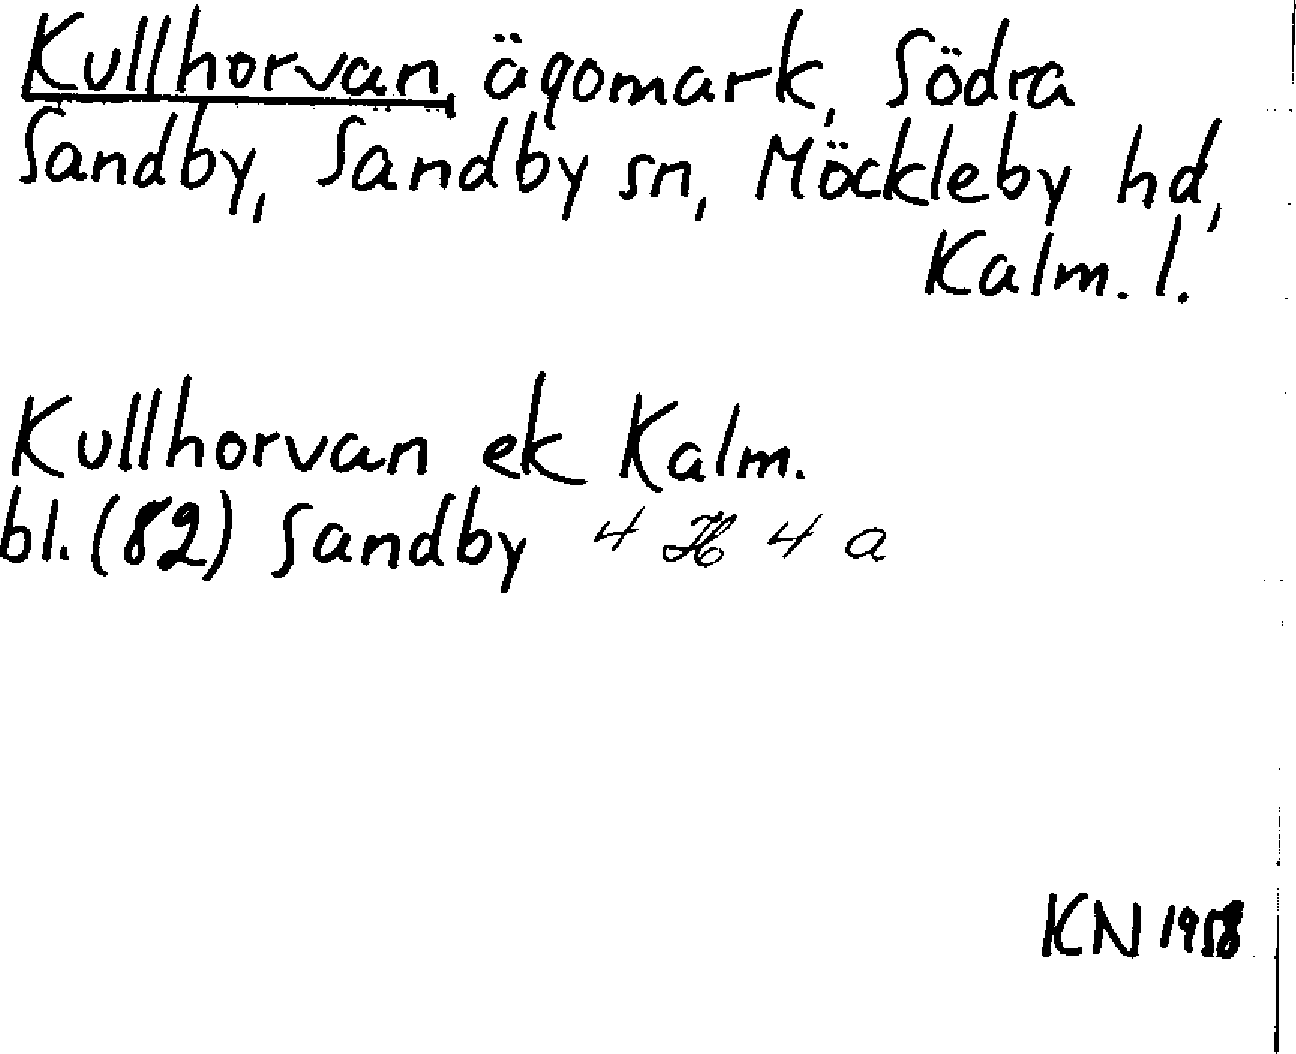 Kullhorvan, ägomark, Södra
Sandby, Sandby sn, Möckleby hd,
Kalm. l.
Kullhorvan ek Kalm.
bl. (82) Sandby 4 H 4 a
KN 1958